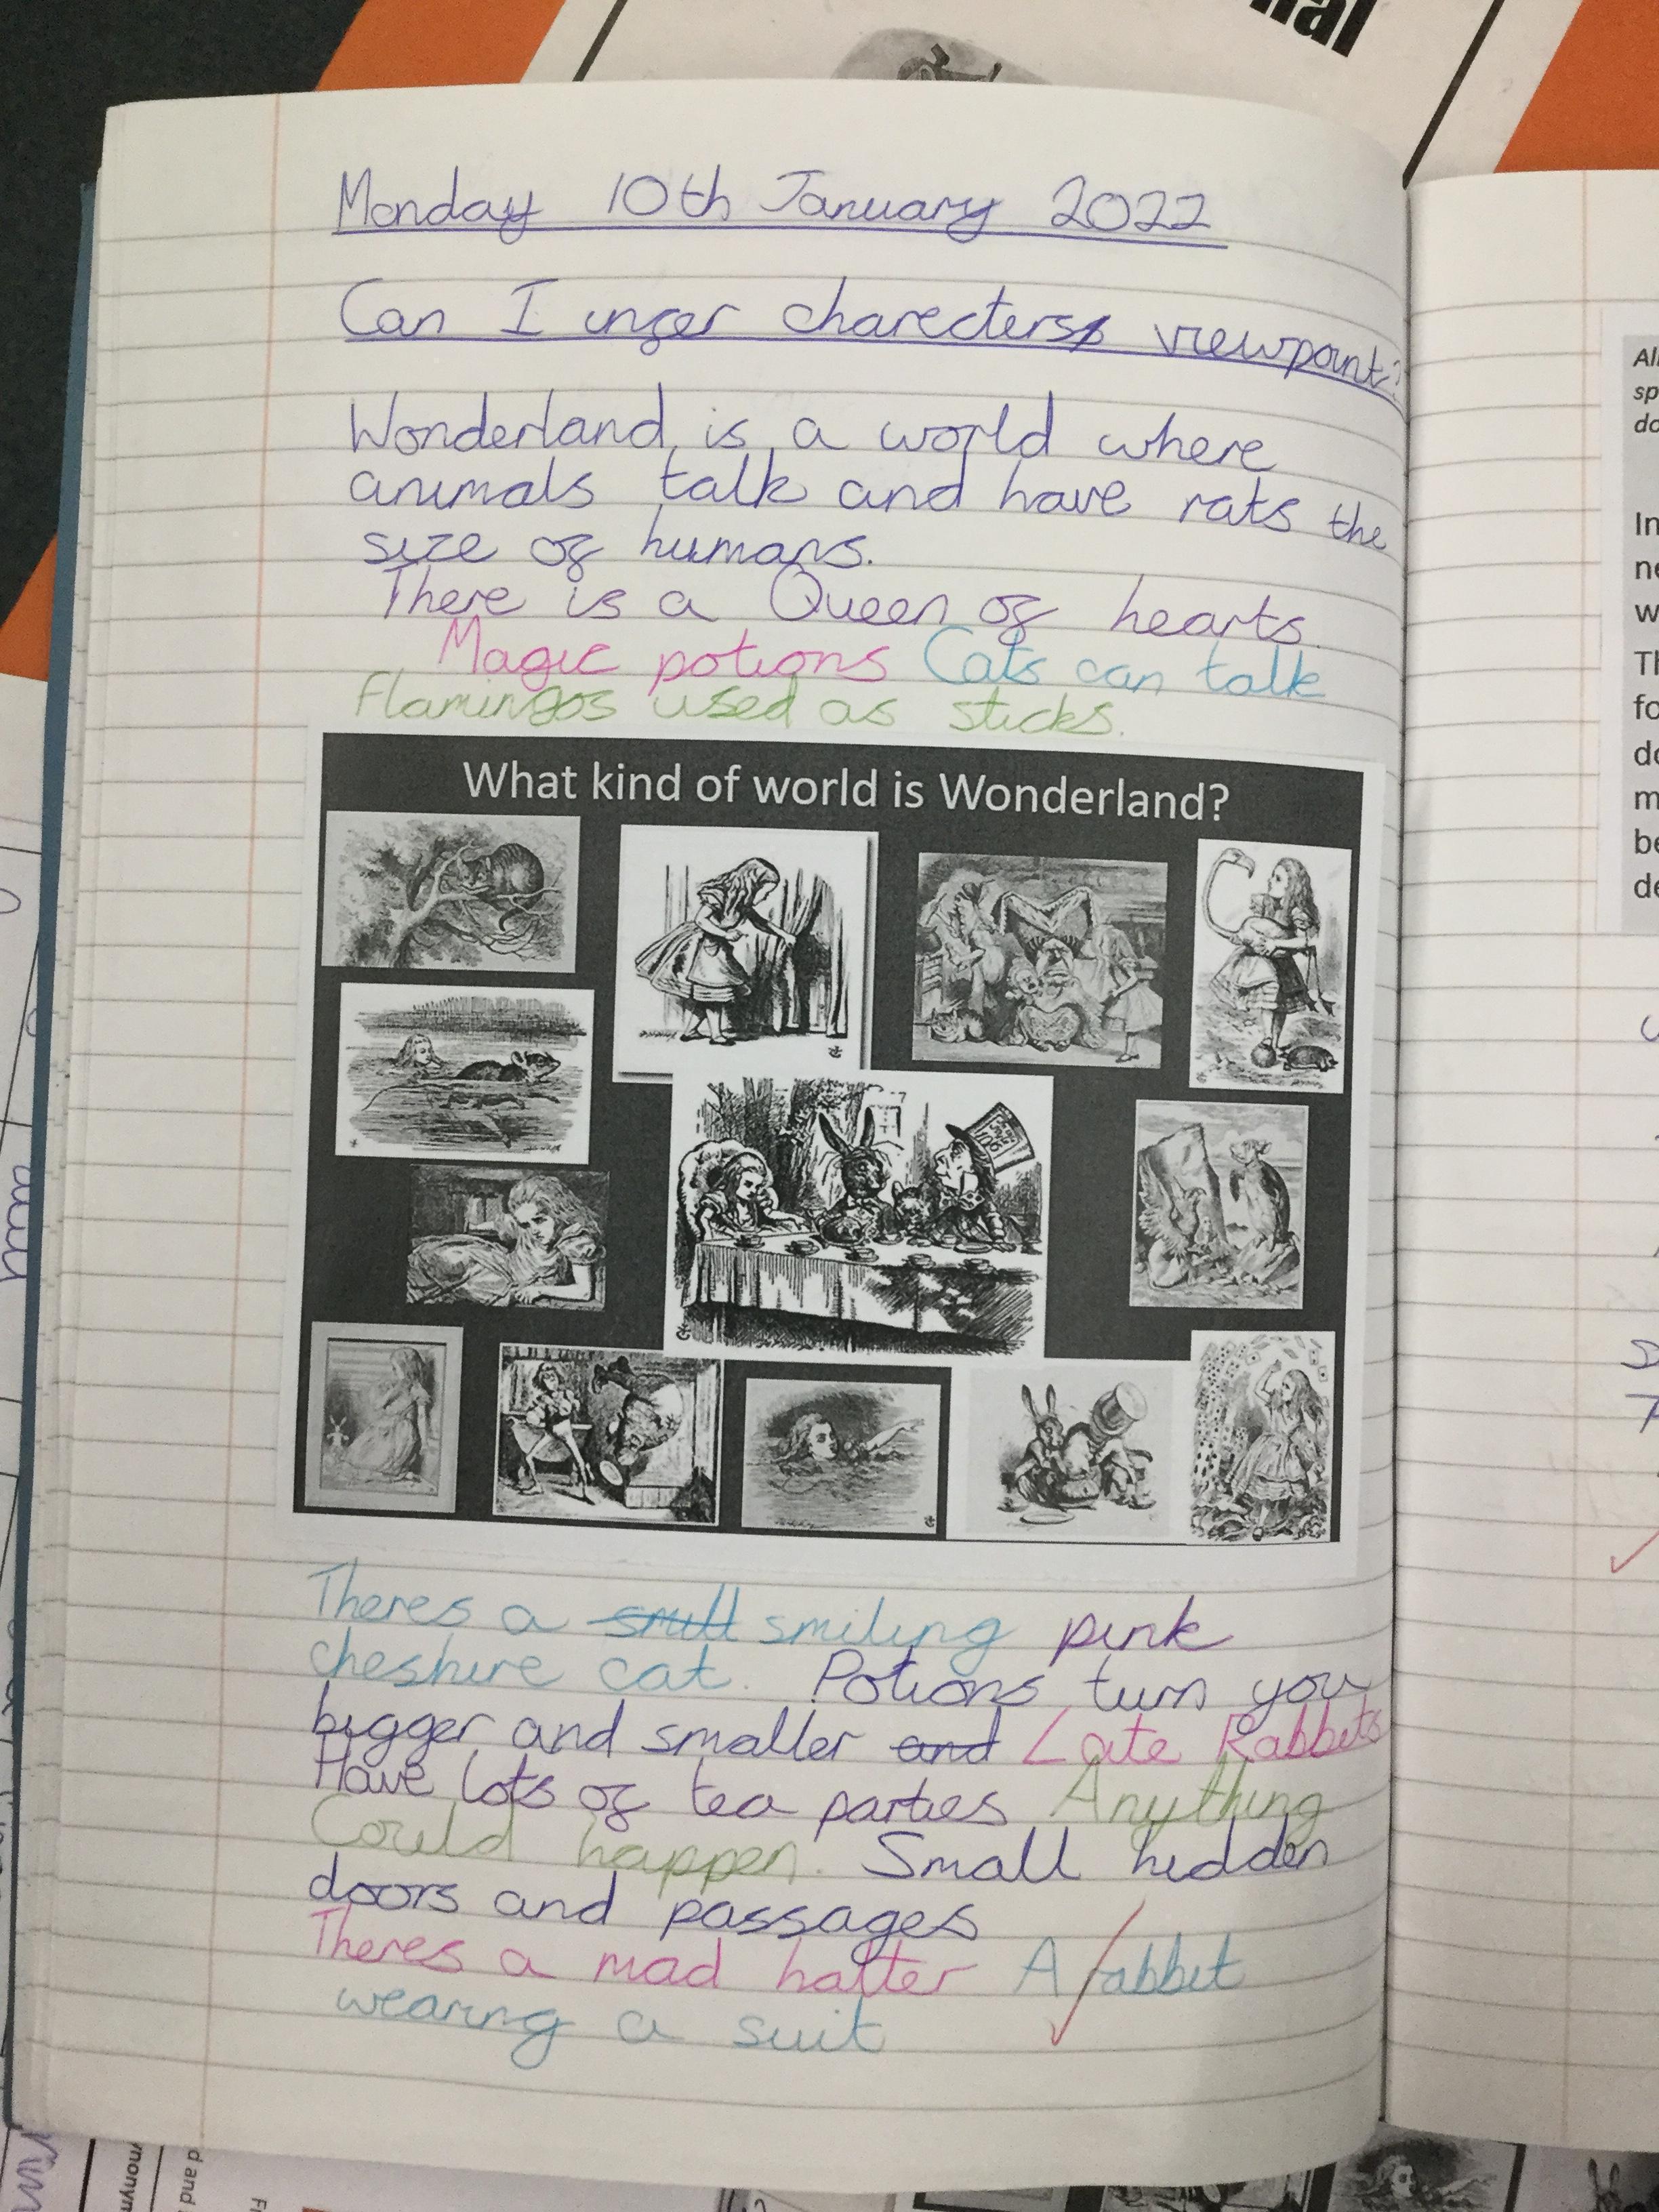 nal
Monday 10th January 2022
Can I infer charecters viewpoint?
Wonderland is a world where
animals talk and have rats the
size of humans.
There is a Queen of hearts.
Magic potions Cats can talk
Flamingos used as sticks.
What kind of world is Wonderland?
Theres a smiling pink
cheshire cat. Potions turn you
bigger and smaller and Late Rabbits
Have lots of tea parties Anything
Could happen. Small hidden
doors and passages
Theres a mad hatter A rabbit
wearing a suit
Al
sp
do
In
ne
w
Th
fo
do
m
be
de